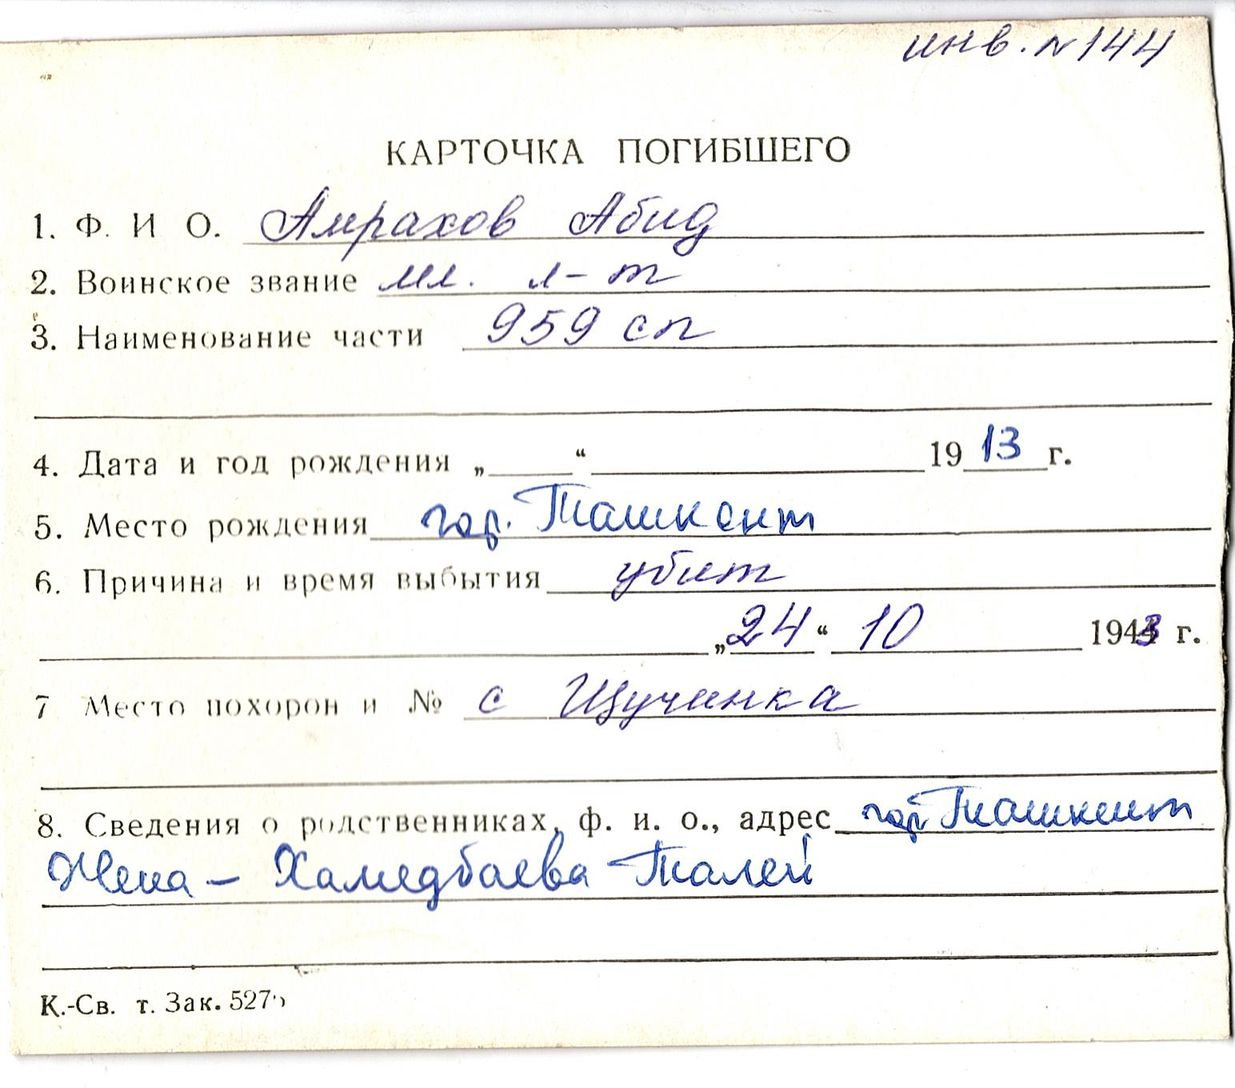 инв. N 144
КАРТОЧКА ПОГИБШЕГО
1. Ф. И О. Амрахов Абид
2. Воинское звание мл. л-т
3. Наименование части 959 сп
4. Дата и год рождения „ “ 1913 г.
5. Место рождения гор. Ташкент
6. Причина и время выбытия убит
„24“ 10 1943 г.
7 Место похорон и № с Щучинка
8. Сведения о родственниках, ф. и. о., адрес гор Ташкент
Жена – Хамедбаева Талей
К.-Св. т. Зак. 5275